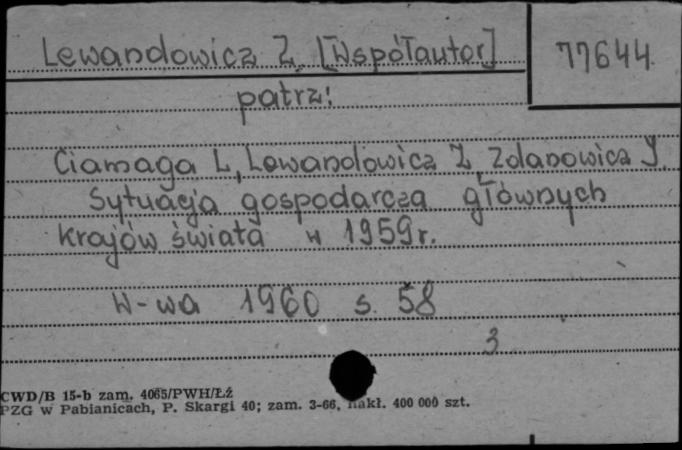 Lewandowicz Z. [Współautor]
77644.
patrz:
Ciamaga L, Lewandowicz Z, Zdanowicz J.
Sytuacja gospodarcza głównych
krajów świata w 1959r.
W-wa 1960 s. 58
3
CWD/B 15-b zam. 4065/PWH/Łż
PZG w Pabianicach, P. Skargi 40; zam. 3-66, nakł. 400 000 szt.